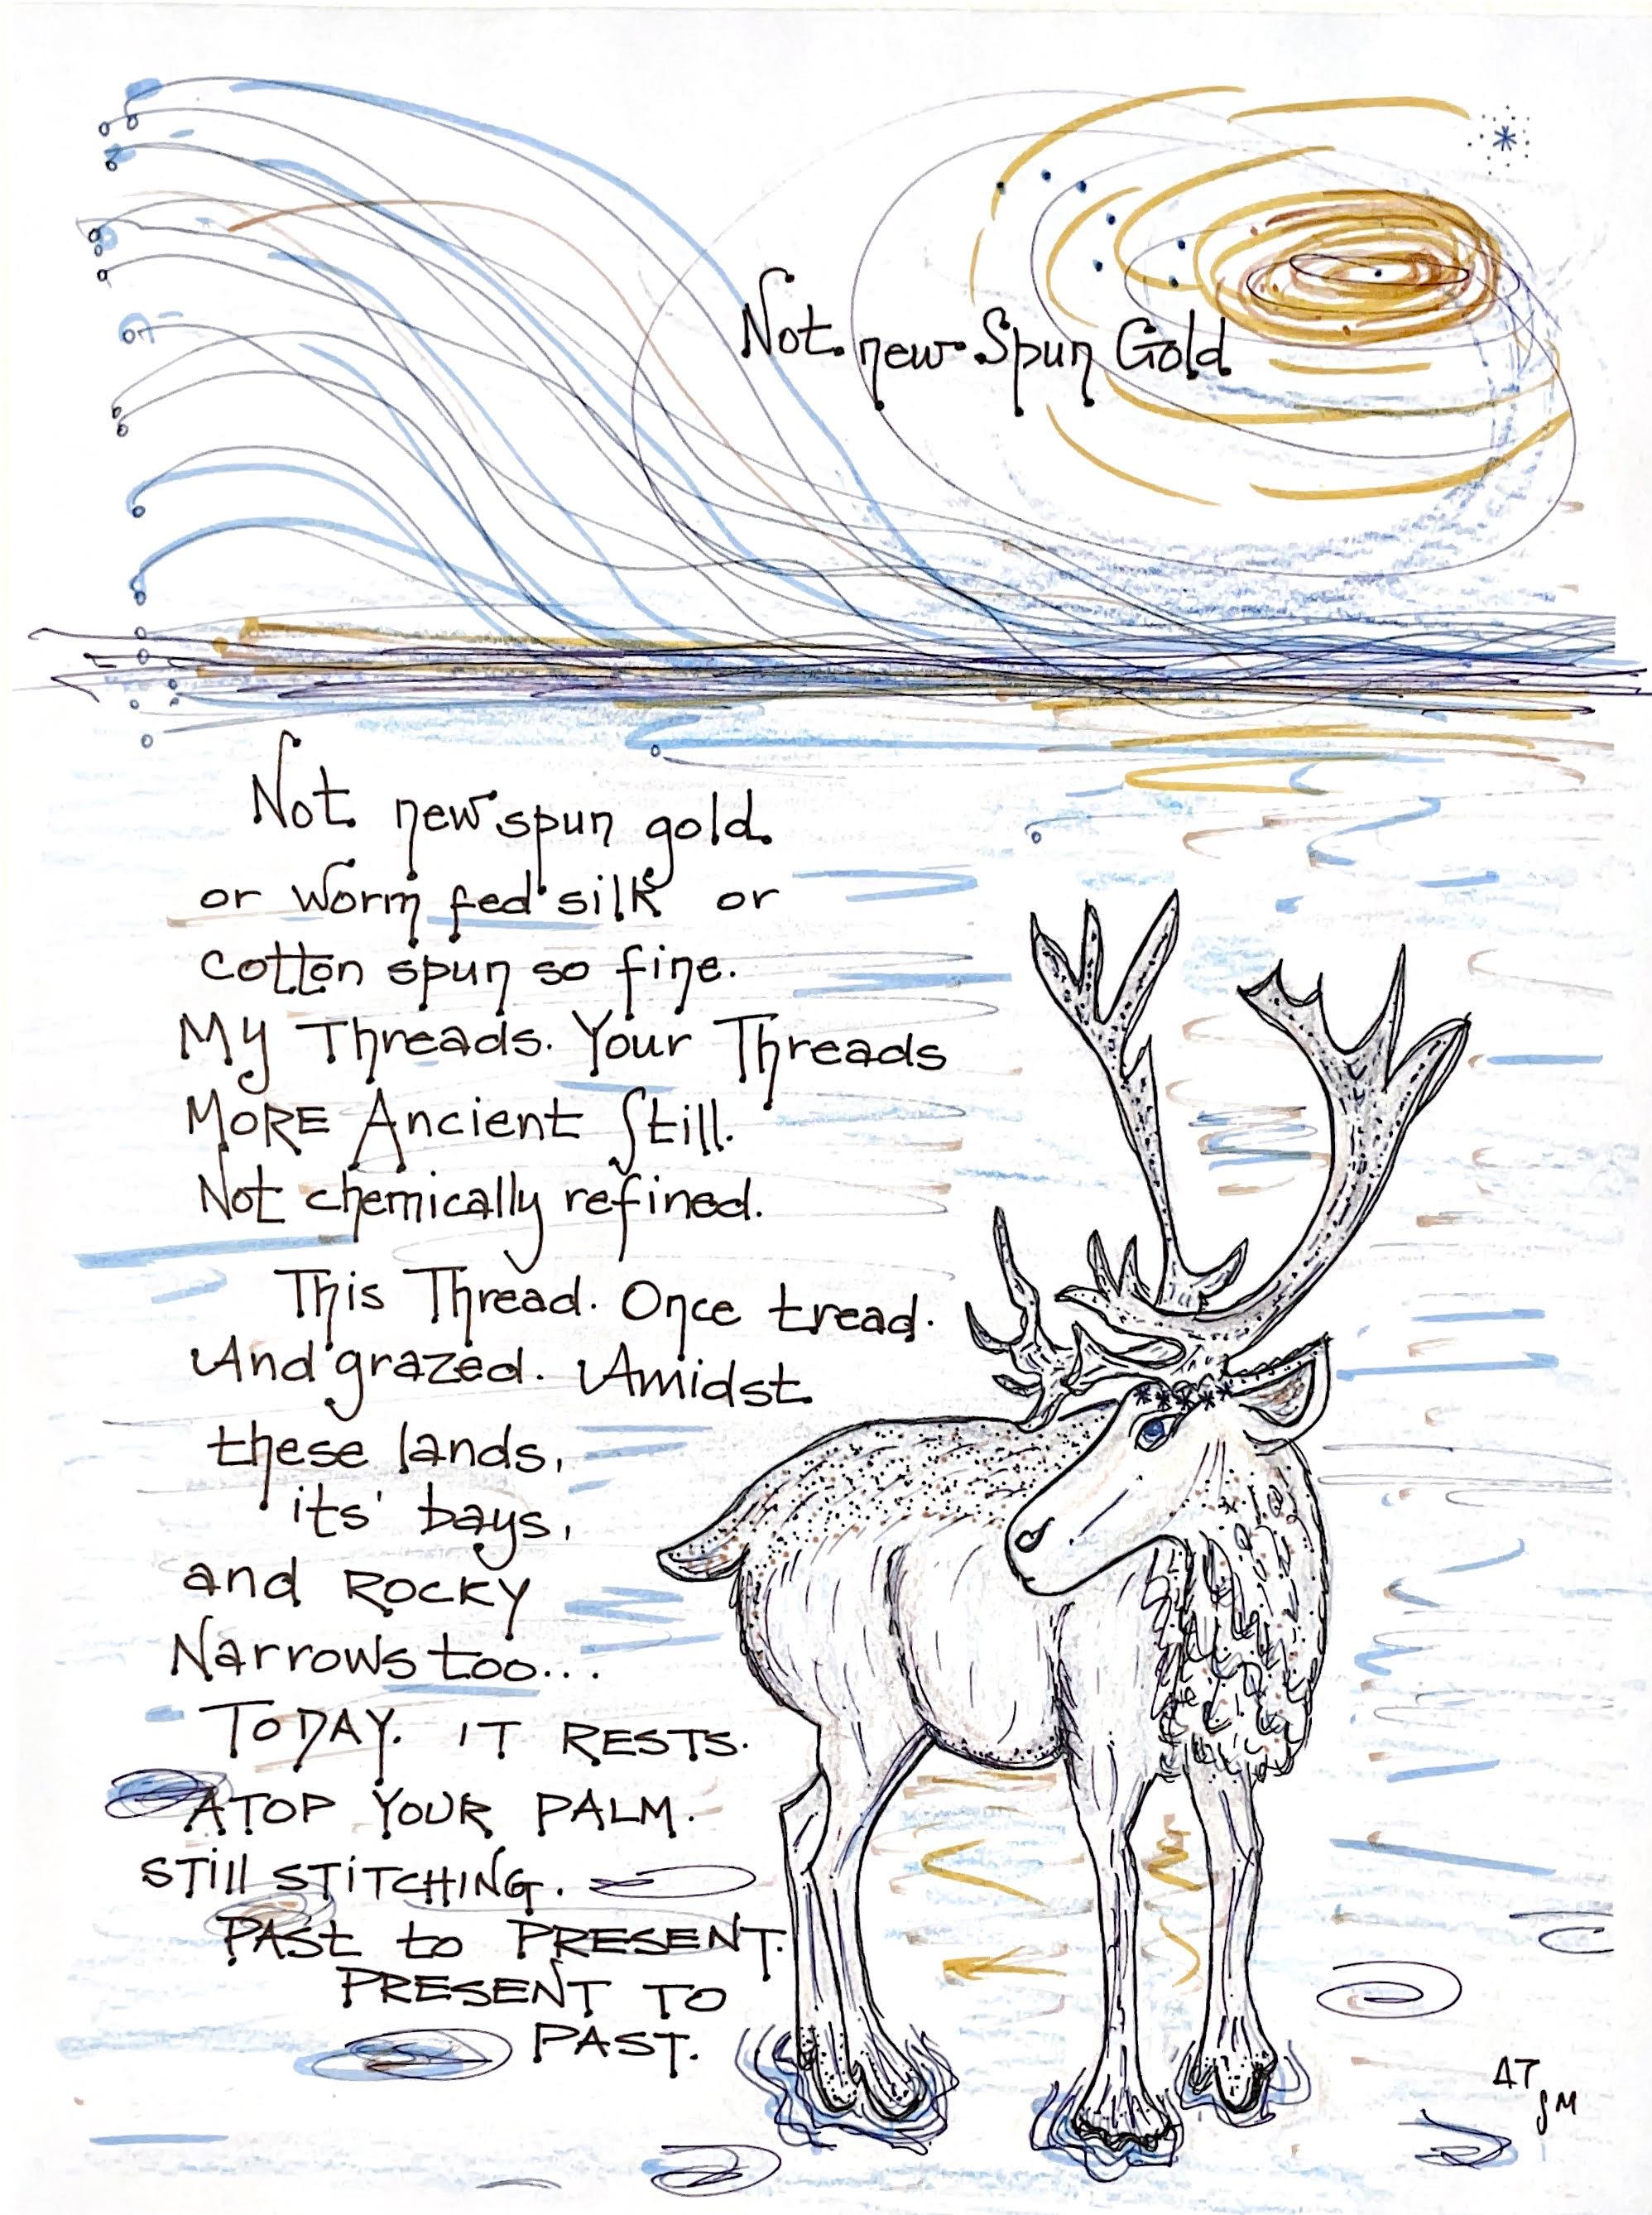 Not new Spun Gold
Not new spun gold
or worm fed silk or
cotton spun so fine.
My Threads. Your Threads
MORE Ancient Still.
Not chemically refined.
This Thread. Once tread.
And grazed. Amidst
these lands,
its' bays,
and ROCKY
Narrows too...
TODAY. IT RESTS.
ATOP YOUR PALM.
STill STiTCHING.
PAST to PRESENT.
PRESENT TO
PAST.
AT
JM